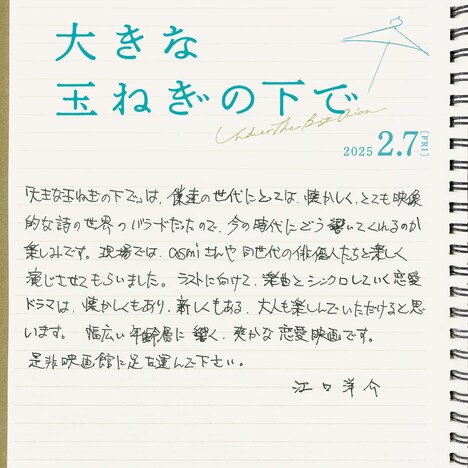 大きな
玉ねぎの下で
Under The Big Onion
2025 2.7 [FRI]
「大きな玉ねぎの下で」は、僕達の世代にとっては、懐かしく、とても映像
的な詩の世界のバラードだったので、今の時代にどう響いてくれるのか
楽しみです。現場では、asmiさんや同世代の俳優人たちと楽しく
演じさせてもらいました。ラストに向けて、楽曲とシンクロしていく恋愛
ドラマは、懐かしくもあり、新しくもある、大人も楽しんでいただけると思
います。 幅広い年齢層に響く、爽かな恋愛映画です。
是非映画館に足を運んで下さい。
江口洋介